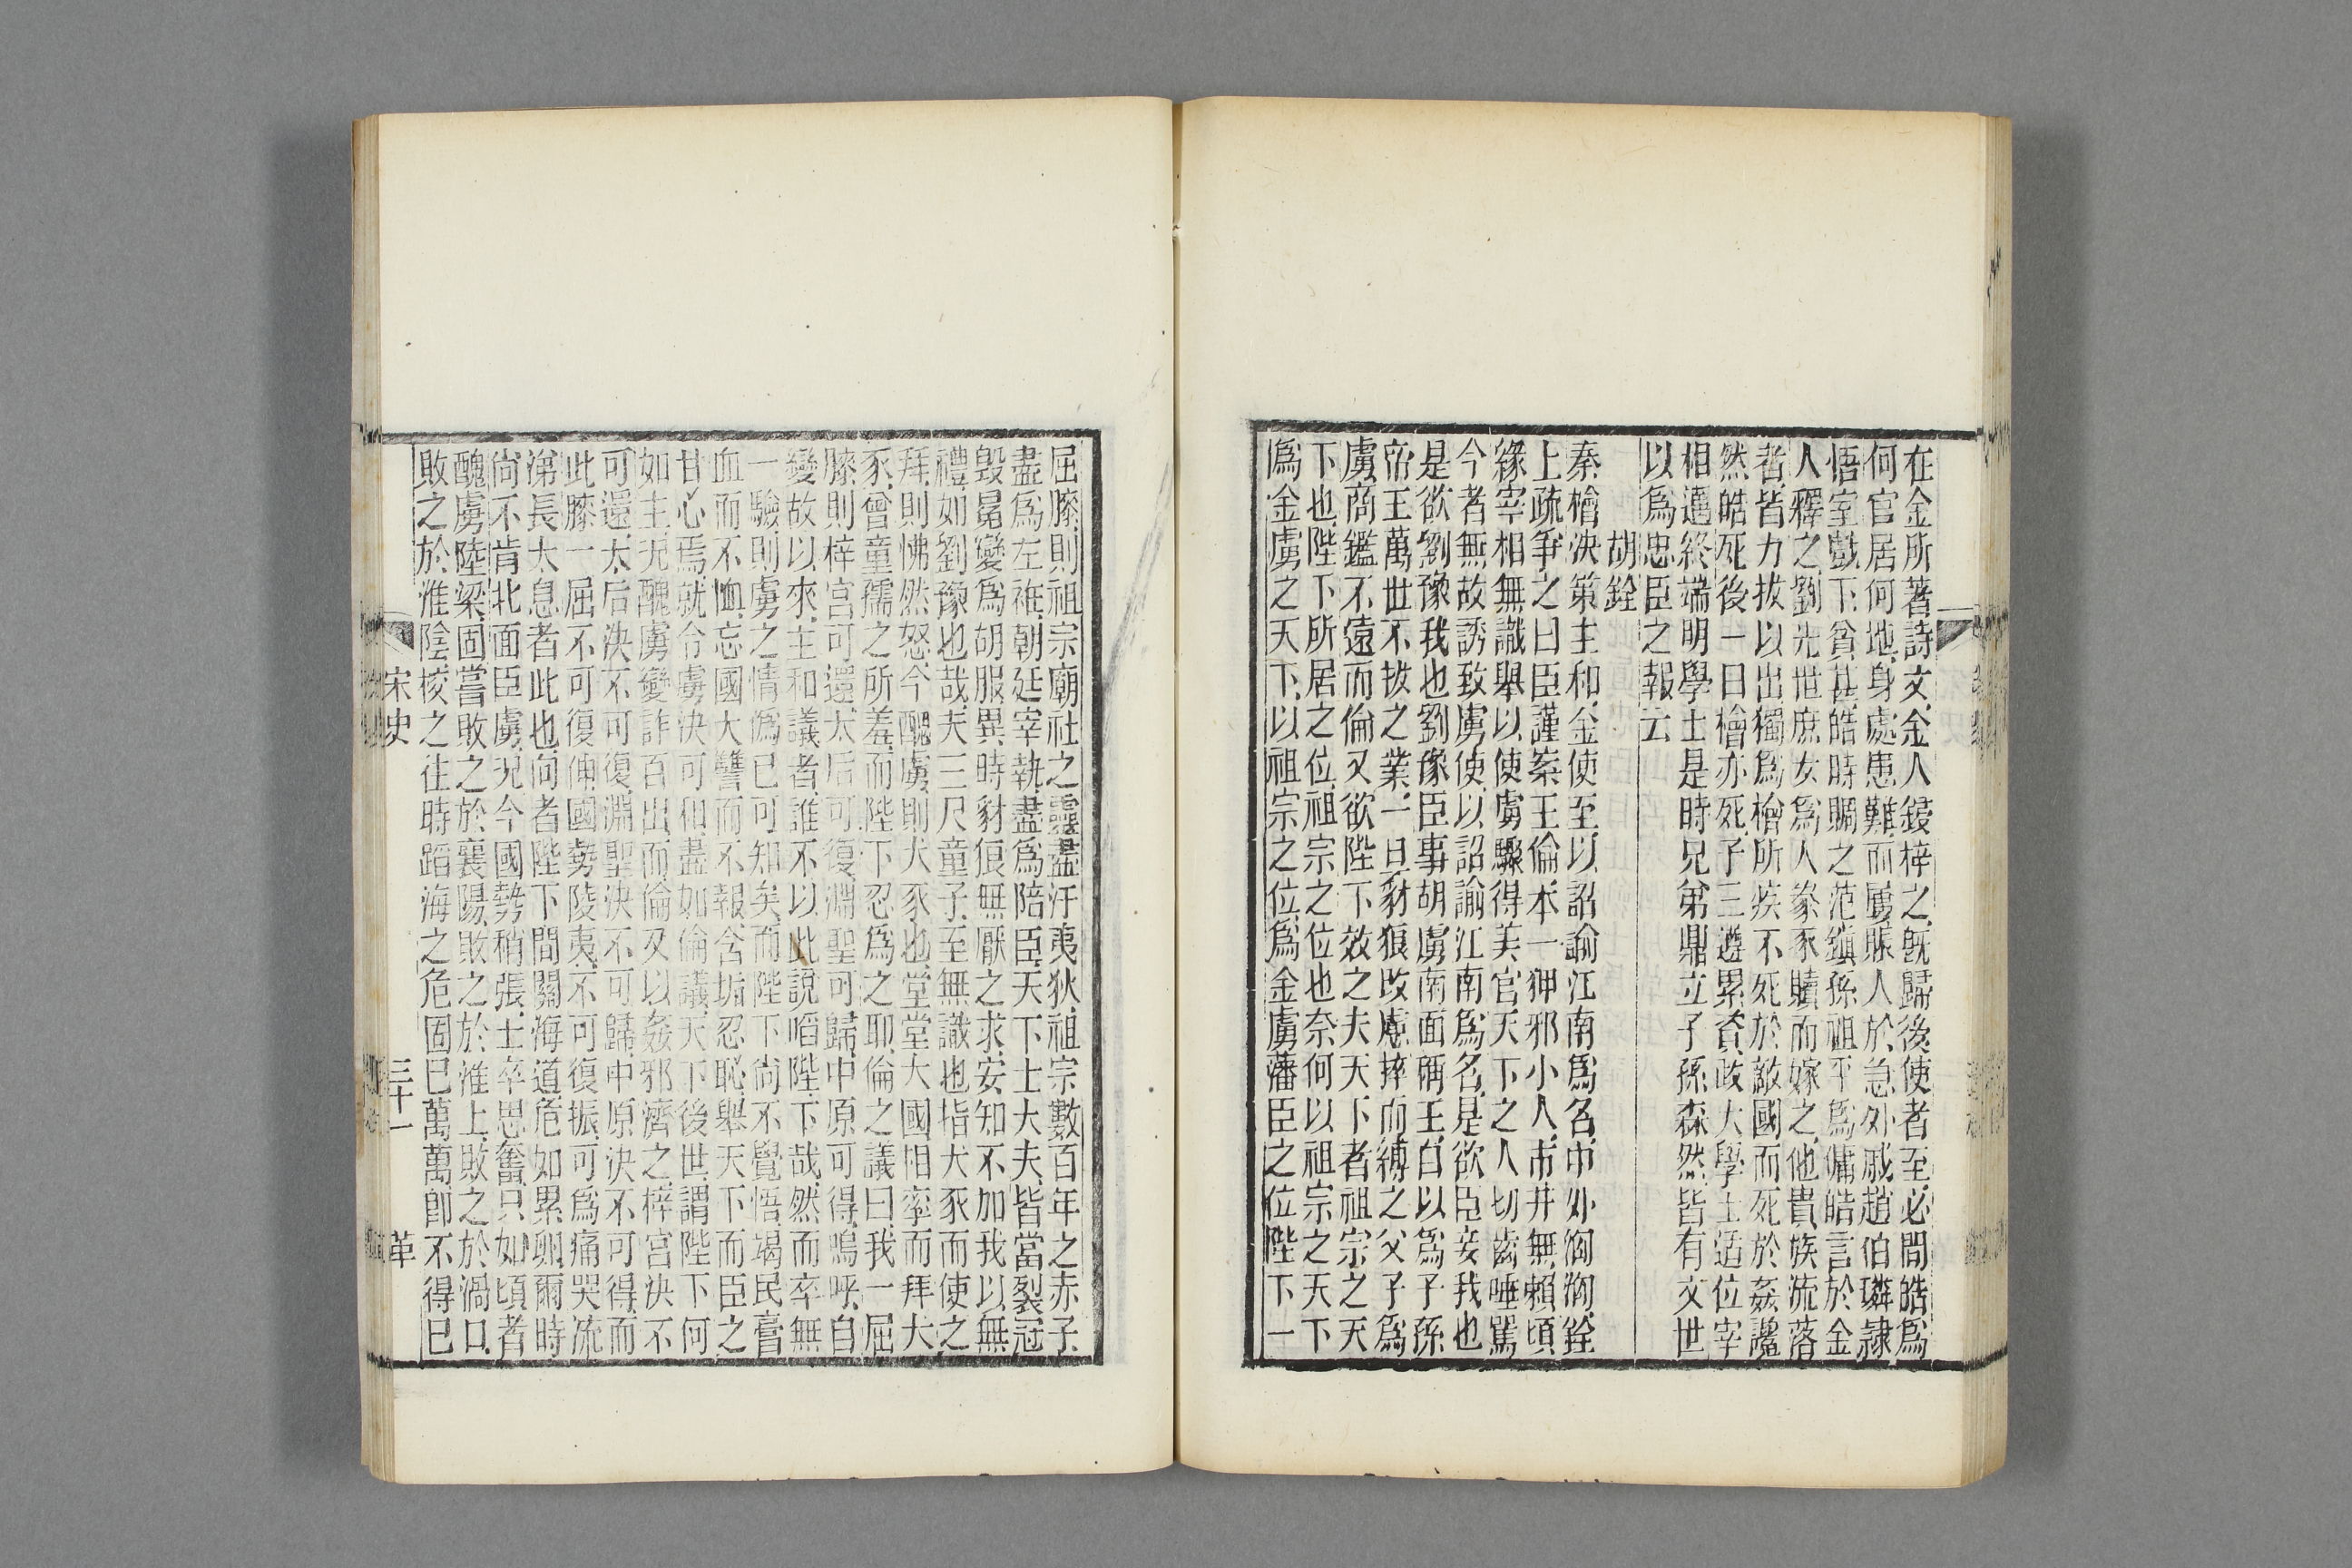 在金所著詩文金人鋟梓之旣歸後使者至必問皓爲
何官居何地身處患難而屢賑人於急外戚趙伯璘隷
悟室戲下貧甚皓時賙之范鎭孫祖平爲傭皓言於金
人釋之劉光世庶女爲人豢豕贖而嫁之他貴族流落
者皆力拔以出獨爲檜所疾不死於敵國而死於姦讒
然皓死後一日檜亦死子三遵累資政大學士适位宰
相邁終端明學士是時兄弟鼎立子孫森然皆有文世
以爲忠臣之報云
胡銓
秦檜決策主和金使至以詔諭江南爲名中外洶洶銓
上疏爭之曰臣謹案王倫本一狎邪小人市井無賴頃
緣宰相無識舉以使虜驟得美官天下之人切齒唾駡
今者無故誘致虜使以詔諭江南爲名是欲臣妾我也
是欲劉豫我也劉豫臣事胡虜南面稱王自以爲子孫
帝王萬世不拔之業一旦豺狼改慮捽而縛之父子爲
虜商鑑不遠而倫又欲陛下效之夫天下者祖宗之天
下也陛下所居之位祖宗之位也奈何以祖宗之天下
爲金虜之天下以祖宗之位爲金虜藩臣之位陛下一
屈膝則祖宗廟社之靈盡汙夷狄祖宗數百年之赤子
盡爲左衽朝廷宰執盡爲陪臣天下士大夫皆當裂冠
毀冕變爲胡服異時豺狼無厭之求安知不加我以無
禮如劉豫也哉夫三尺童子至無識也指犬豕而使之
拜則怫然怒今醜虜則犬豕也堂堂大國相率而拜犬
豕曾童孺之所羞而陛下忍爲之耶倫之議曰我一屈
膝則梓宮可還太后可復淵聖可歸中原可得嗚呼自
變故以來主和議者誰不以此說啗陛下哉然而卒無
一驗則虜之情僞已可知矣而陛下尙不覺悟竭民膏
血而不恤忘國大讐而不報含垢忍恥舉天下而臣之
甘心焉就令虜決可和盡如倫議天下後世謂陛下何
如主况醜虜變詐百出而倫又以姦邪濟之梓宮決不
可還太后決不可復淵聖決不可歸中原決不可得而
此膝一屈不可復伸國勢陵夷不可復振可爲痛哭流
涕長太息者此也向者陛下間關海道危如累卵爾時
尙不肯北面臣虜况今國勢稍張士卒思奮只如頃者
醜虜陸梁固嘗敗之於襄陽敗之於淮上敗之於渦口
敗之於淮陰校之往時蹈海之危固已萬萬卽不得已
宋史 三十一 革